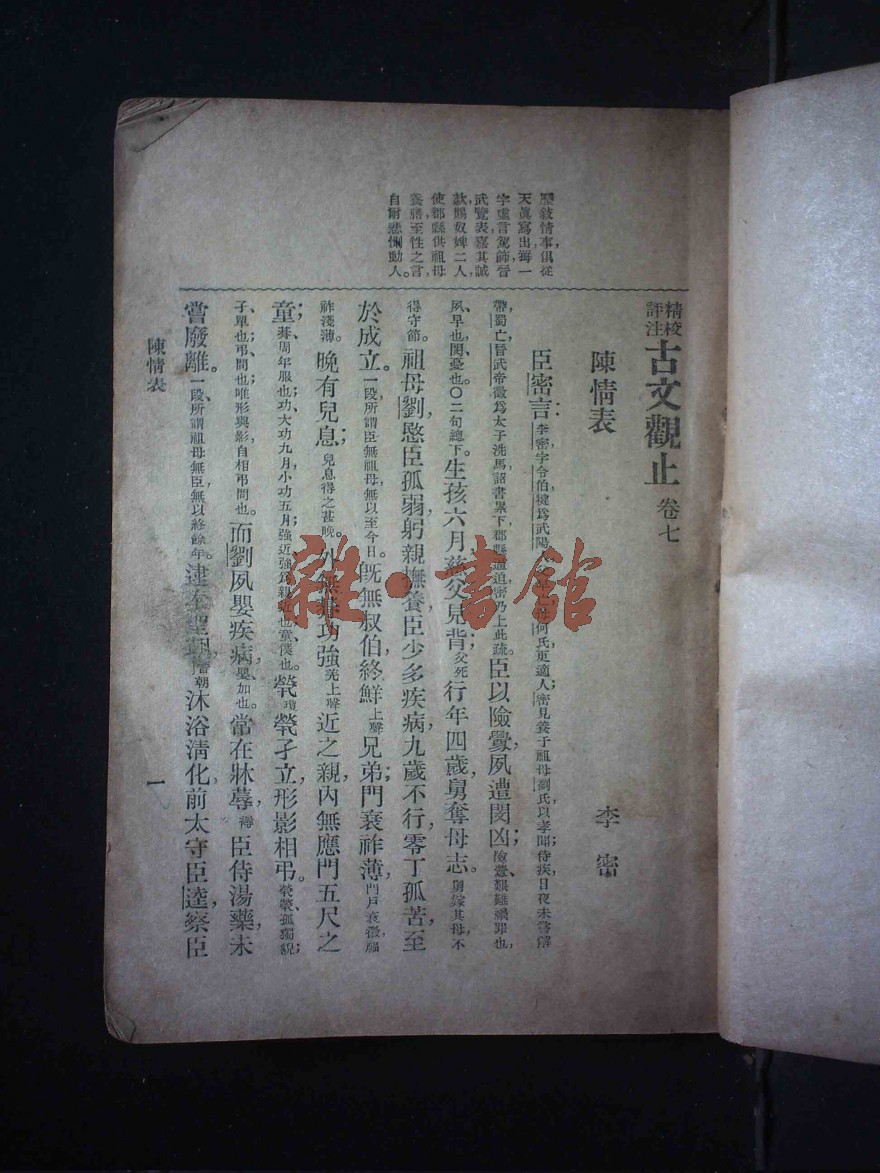 精校
評注
古文觀止 卷七
歷敘情事,俱從
天眞寫出,無一
字虛言駕飾。晉
武覽表,嘉其誠
款,賜奴婢二人,
使郡縣供祖母
奉膳。至性之言,
自爾悲惻動人。
陳情表
李密
臣密言:李密,字令伯,犍爲武陽人,父早亡,母何氏更適人;密見養于祖母劉氏,以孝聞;侍疾日夜未嘗解
帶,蜀亡,晉武帝徵爲太子洗馬,詔書累下,郡縣逼迫,密乃上此疏。臣以險釁,夙遭閔凶;險釁,艱難禍罪也,
夙、早也,閔、憂也。〇二句總下。生孩六月,慈父見背;父死行年四歲,舅奪母志。舅嫁其母,不
得守節。祖母劉,愍臣孤弱,躬親撫養,臣少多疾病,九歲不行,零丁孤苦,至
於成立。一段,所謂臣無祖母,無以至今日。既無叔伯,終鮮上聲兄弟;門衰祚薄,門戶衰微,福
祚淺薄。晚有兒息;兒息得之甚晚。外無朞功強羌上聲近之親,內無應門五尺之
童;朞、周年服也;功、大功九月,小功五月;強近、強爲親近也;童、僕也。煢瓊煢孑立,形影相弔。煢煢、孤獨貌;
孑、單也;弔、問也;唯形與影,自相弔問也。而劉夙嬰疾病,嬰、加也。常在牀蓐;褥臣侍湯藥,未
嘗廢離。一段,所謂祖母無臣,無以終餘年。逮奉聖朝,晉朝沐浴清化,前太守臣逵,察臣
陳情表
一
雜·書館